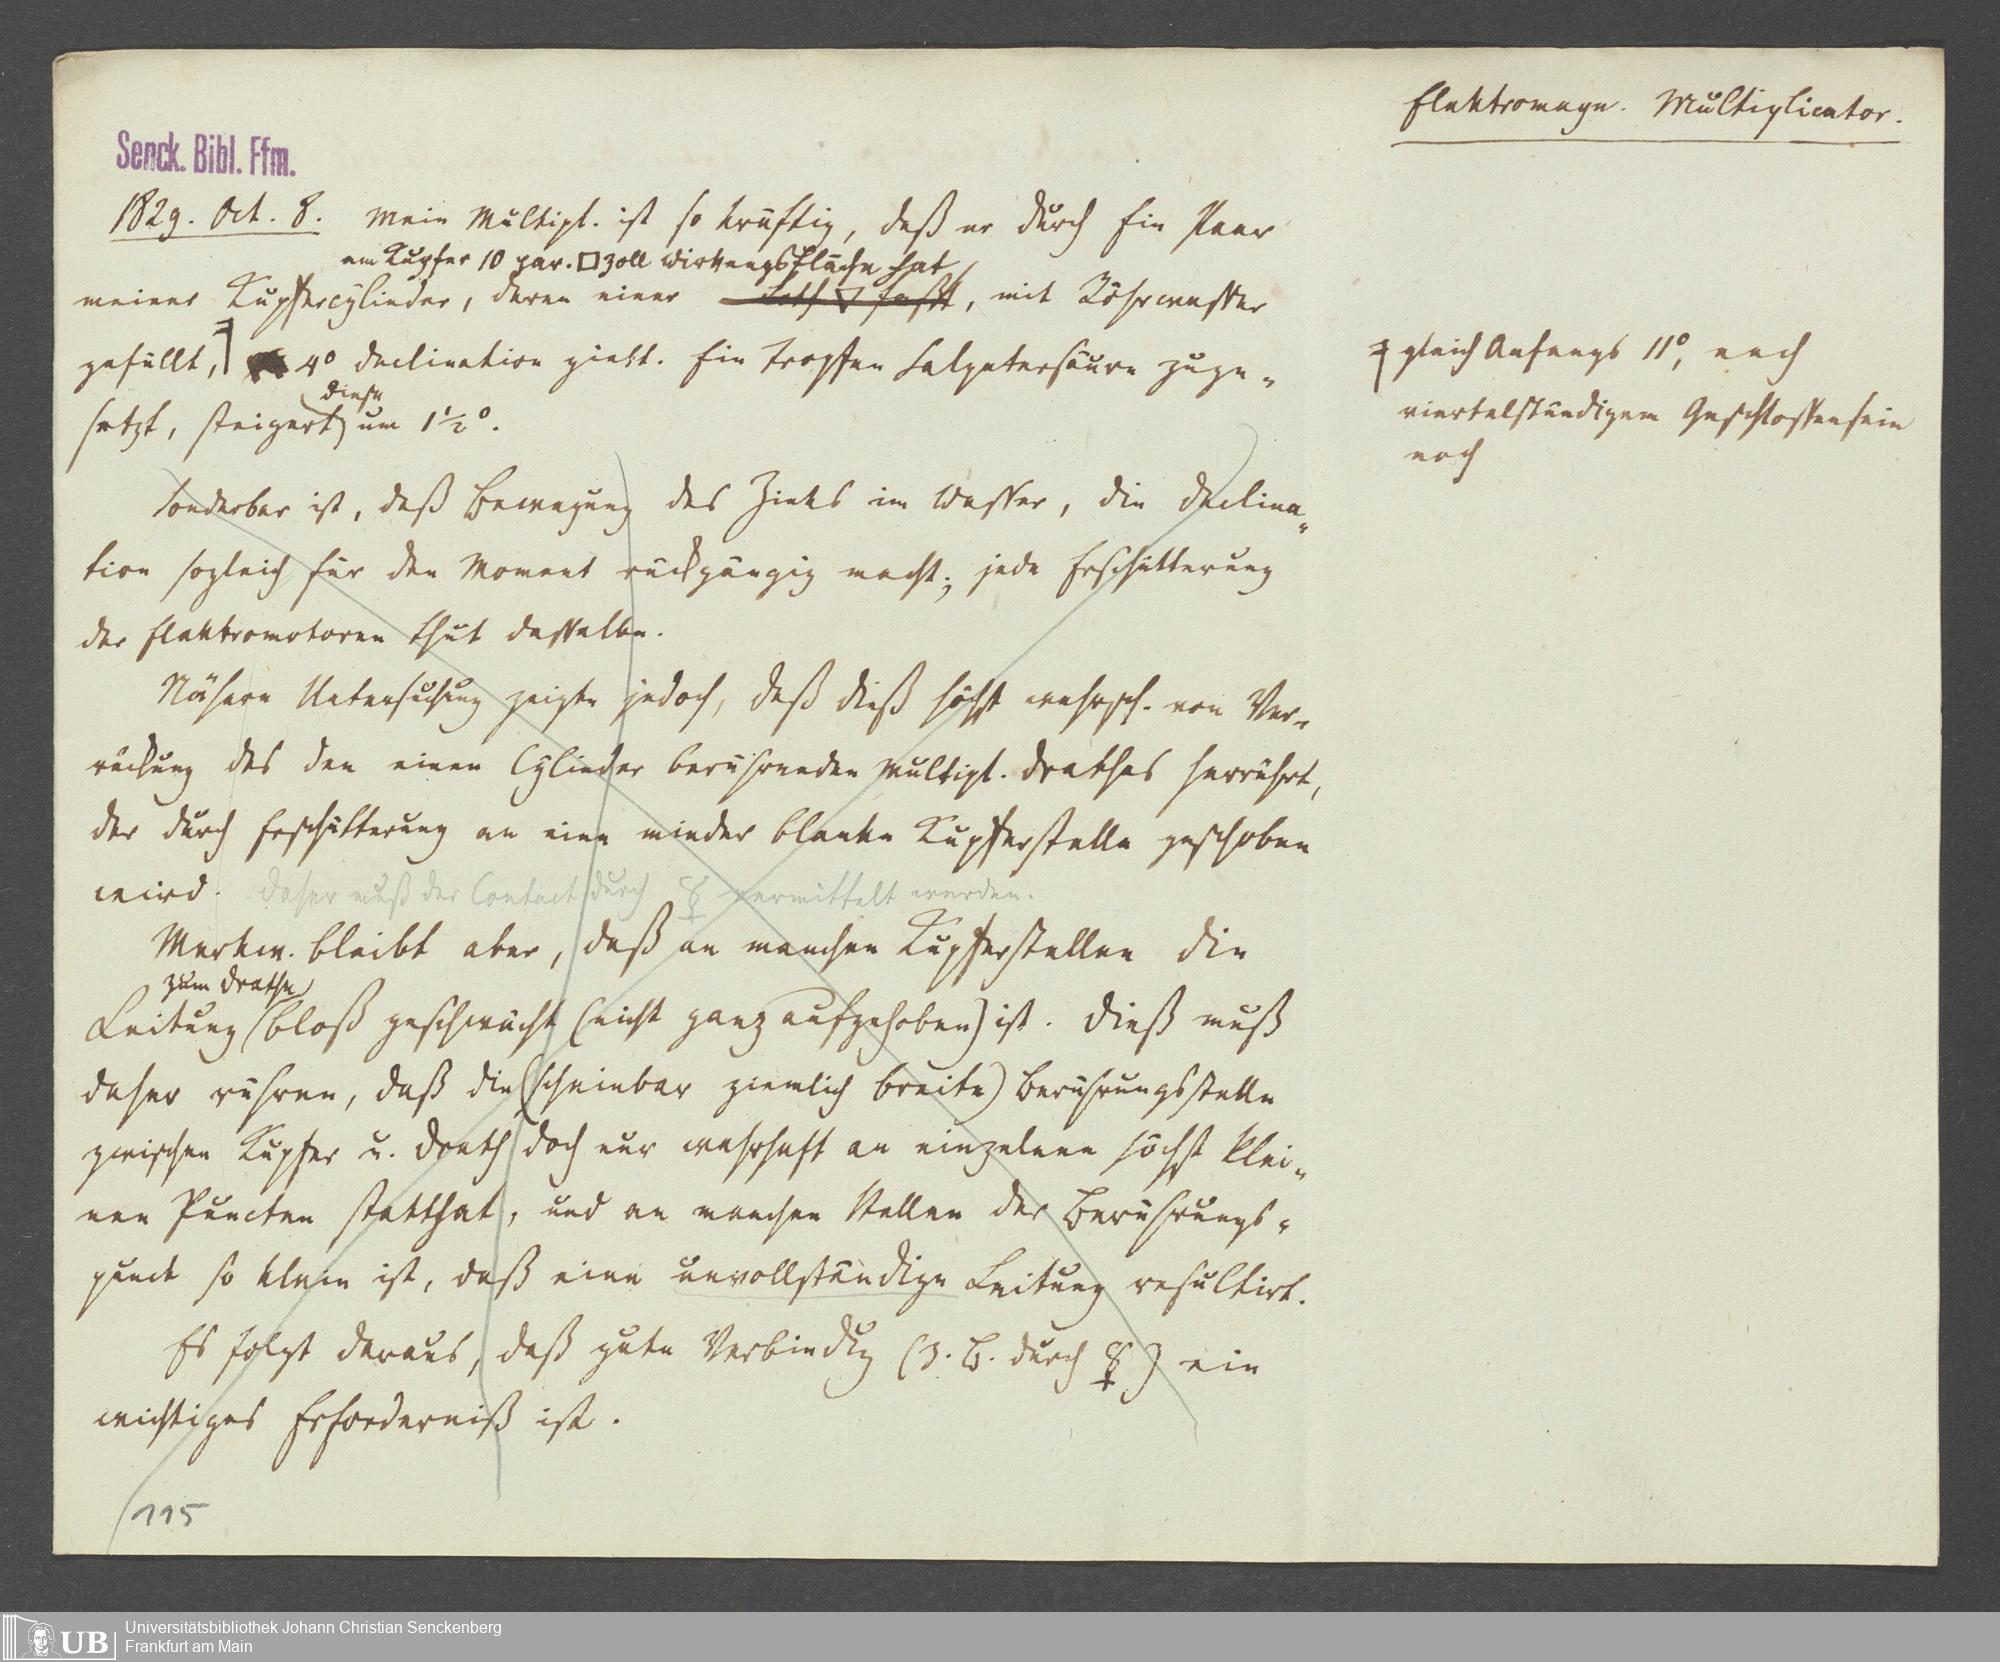 Elektromagn. Multiplicator.
Senck. Bibl. Ffm.
1829. Oct. 8. Mein Multipl. ist so kräftig, daß er durch Ein Paar
am Kupfer 10 par. □ Zoll Wirkungsfläche hat
meiner Kupfercylinder, deren einer Loth ▽ faßt, mit Röhrwasser
gefüllt, 4° Declination giebt. Ein Tropfen Salpetersäure zuge-
diese
setzt, steigert um 1½°.
gleich Anfangs 11°, nach
viertelstündigem Geschlossensein
noch
Sonderbar ist, daß Bewegung des Zinks im Wasser, die Declina-
tion sogleich für den Moment rückgängig macht; jede Erschütterung
der Elektromotoren thut dasselbe.
Nähere Untersuchung zeigte jedoch, daß dieß höchst wahrsch. von Ver-
rückung des den einen Cylinder berührenden Multipl. Drathes herrührt,
der durch Erschütterung an eine minder blanke Kupferstelle geschoben
wird. Daher muß der Contact durch ☿ vermittelt werden.
Merkw. bleibt aber, daß an manchen Kupferstellen die
zum Drathe
Leitung bloß geschwächt (nicht ganz aufgehoben) ist. Dieß muß
daher rühren, daß die (scheinbar ziemlich breite) Berührungsstelle
zwischen Kupfer u. Drath doch nur wahrhaft an einzelnen höchst klei-
nen Puncten statthat, und an manchen Stellen der Berührungs-
punct so klein ist, daß eine unvollständige Leitung resultirt.
Es folgt daraus, daß gute Verbindg (z. B. durch ☿) ein
wichtiges Erforderniß ist.
115
UB
Universitätsbibliothek Johann Christian Senckenberg
Frankfurt am Main